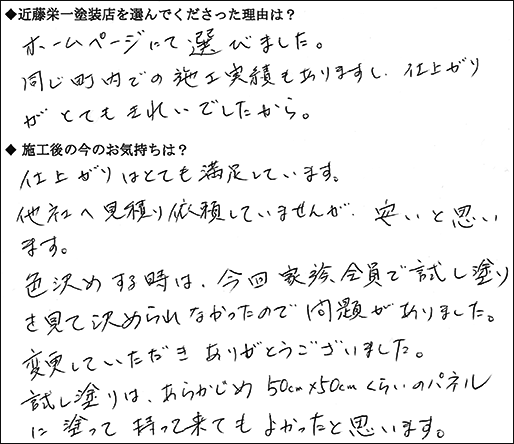 ◆近藤栄一塗装店を選んでくださった理由は？
ホームページにて選びました。
同じ町内での施工実績もありますし、仕上がり
がとてもきれいでしたから。
◆ 施工後の今のお気持ちは？
仕上がりはとても満足しています。
他社へ見積り依頼していませんが、安いと思い
ます。
色決めする時は、今回家族全員で試し塗り
を見て決められなかったので問題がありました。
変更していただきありがとうございました。
試し塗りは、あらかじめ50cm×50cmくらいのパネル
に塗って持って来てもよかったと思います。